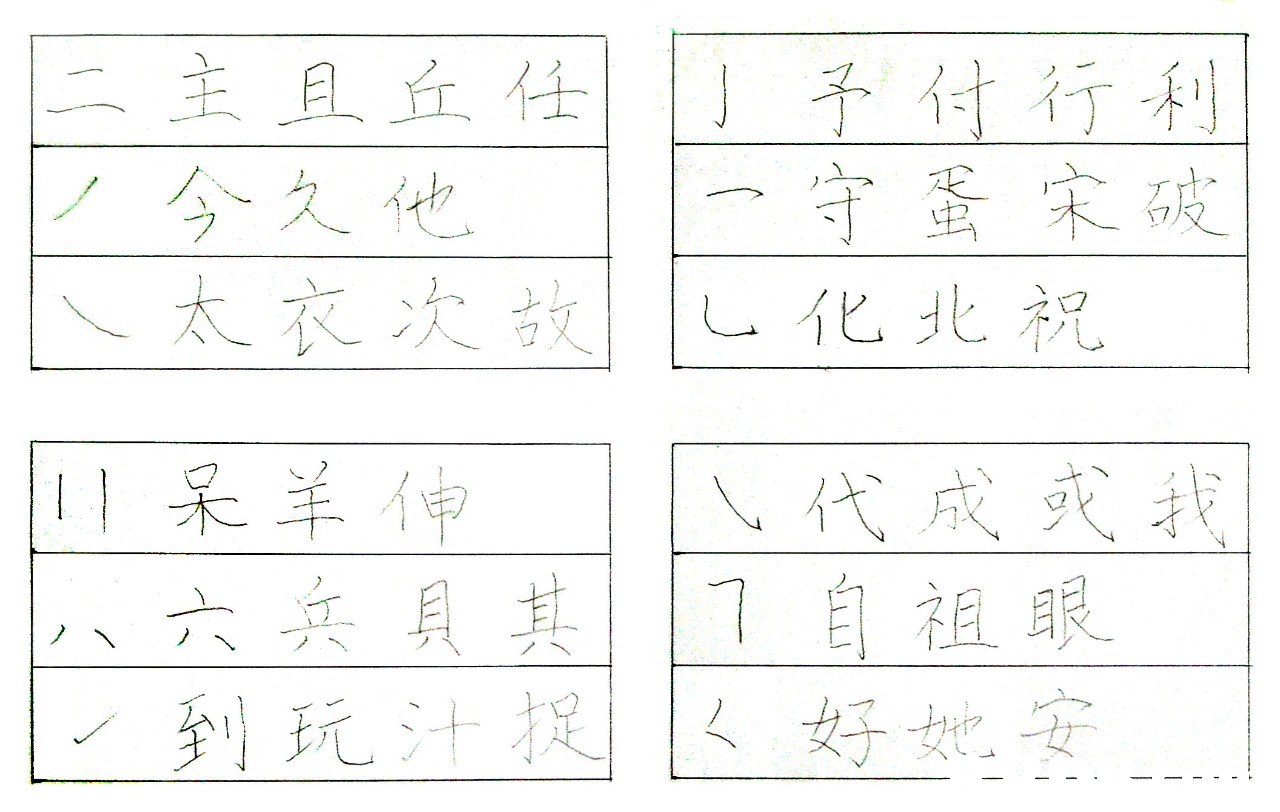 二 主 且 丘 任
㇒ 今 久 他
㇏ 太 衣 次 故
亅 予 付 行 利
乛 守 蛋 宋 破
乚 化 北 祝
〢 呆 羊 伸
八 六 兵 具 其
㇀ 到 玩 汁 捉
㇂ 代 成 或 我
㇕ 自 祖 眼
𡿨 好 她 安